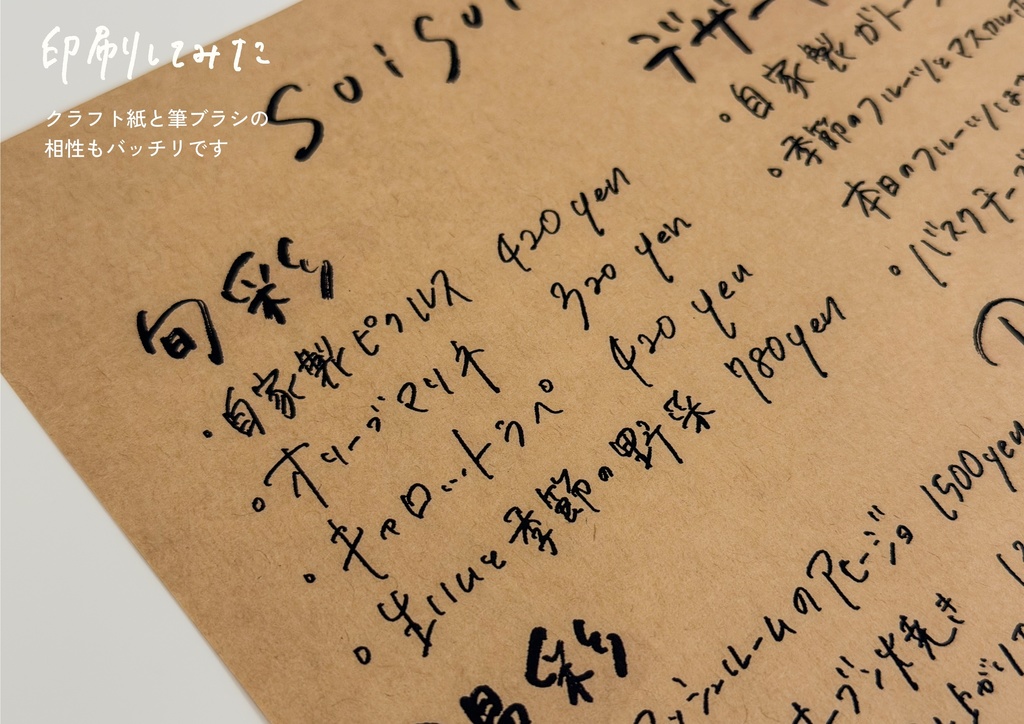 印刷してみた
クラフト紙と筆ブラシの
相性もバッチリです
旬彩
・自家製ピクルス 420 yen
・オリーブマリネ 320 yen
・キャロットラペ 420 yen
・生ハムと季節の野菜 780yen
デザート
・自家製ガトー
・季節のフルーツとマスカルポ
本日のフルーツは
・バスクチーズ
ッシュルームのアヒージョ 1500yen
オーブン焼き